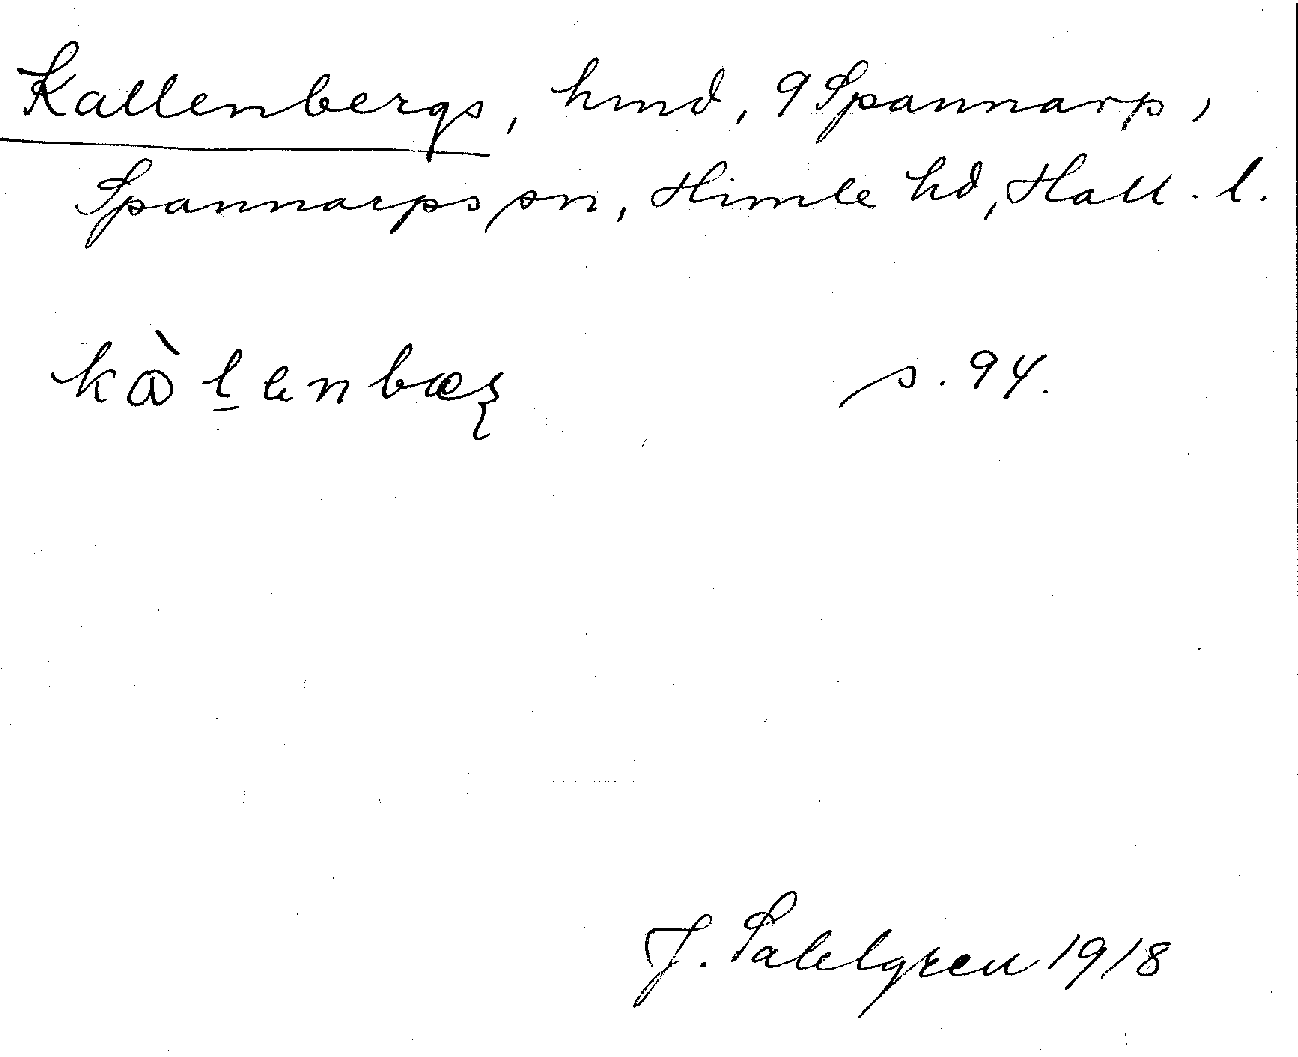 Kallenbergs, hmd, 9 Spannarp,
Spannarps sn, Himle hd, Hall. l.
s. 94.
J. Sahlgren 1918